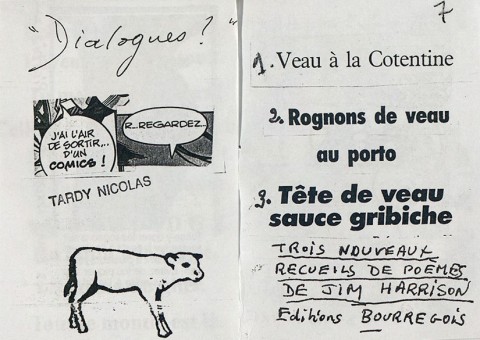 "Dialogues?"
J'AI L'AIR
DE SORTIR...
D'UN
COMICS !
R...REGARDEZ...
TARDY NICOLAS
7
1. Veau à la Cotentine
2. Rognons de veau
au porto
3. Tête de veau
sauce gribiche
TROIS NOUVEAUX
RECUEILS DE POEMES
DE JIM HARRISON
Editions BOURREGOIS